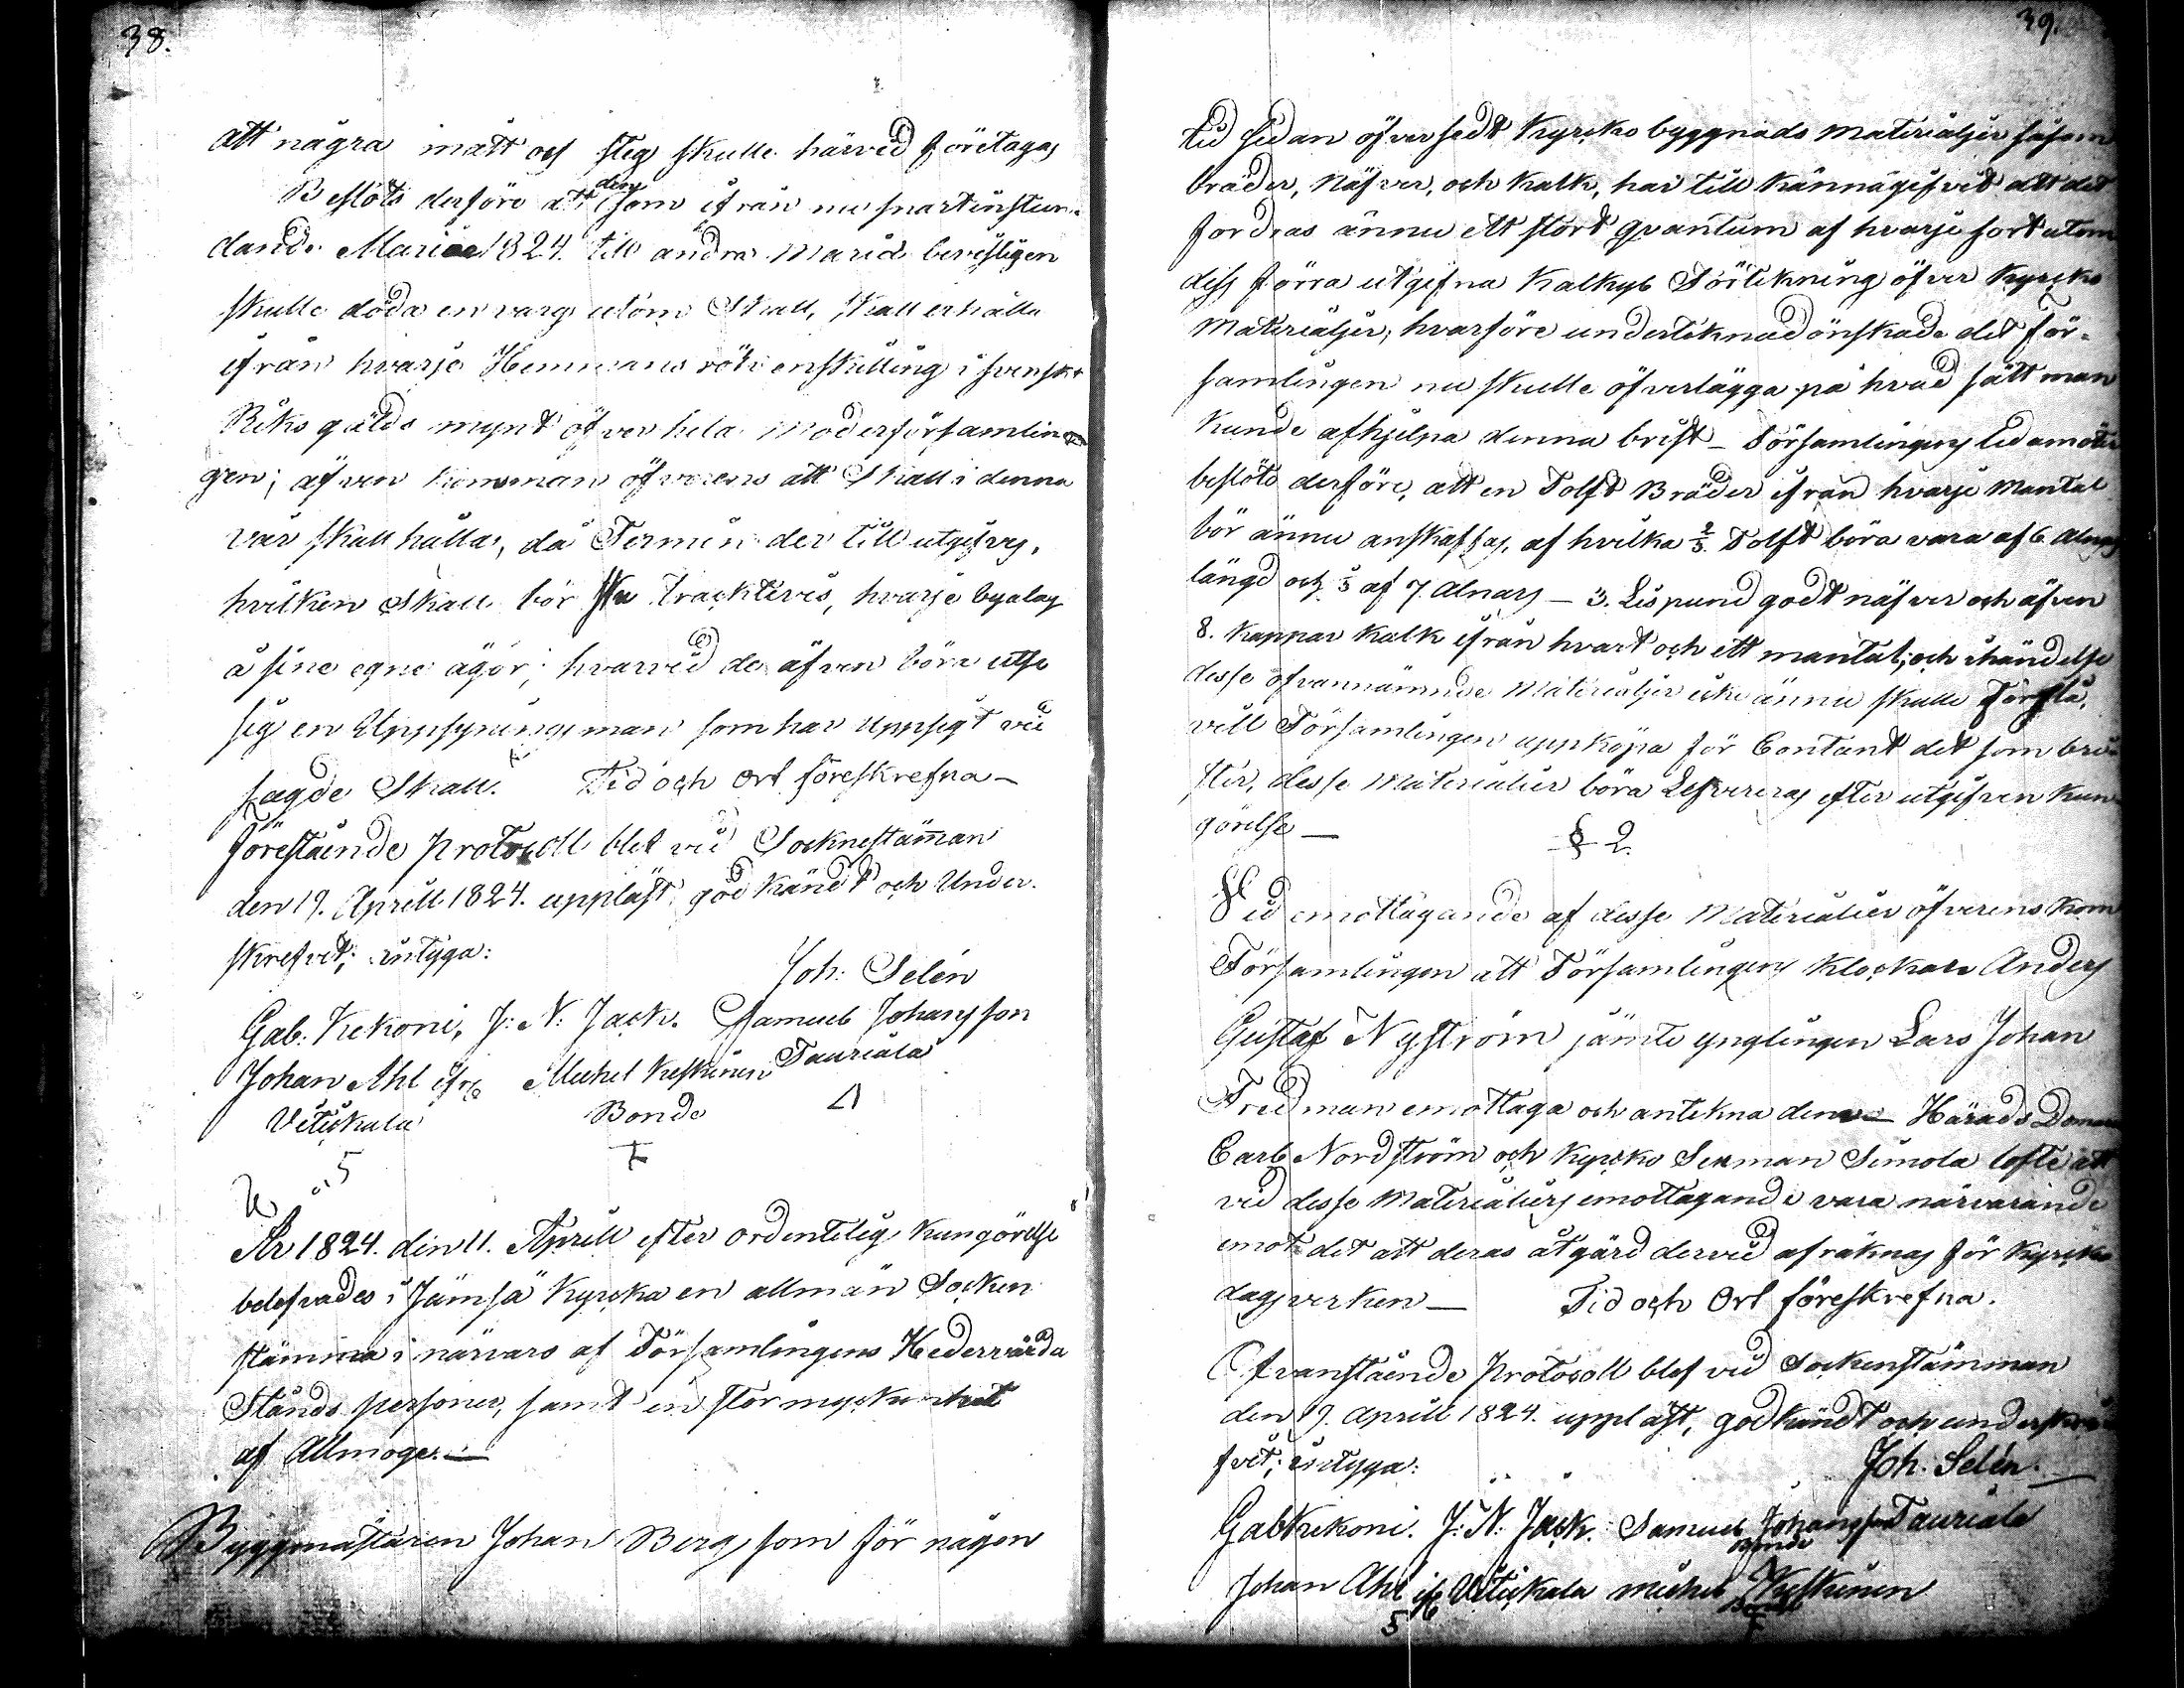 38.
att några mått och steg skulle härvid företagas
Beslöts derföre att den som ifrån nu snart instun-
dande Mariæ 1824. till andra Mariæ bevisligen
skulle döda en varg utom Skall, skall erhålla
ifrån hvarje Hemmans rök en skilling i svenskt
Riks gälds mynt öfver hela Moderförsamlin
gen; äfven komman öfverens att Skall i denna
vår skall hållas, då Termin der till utgifves,
hvilken Skall bör ske tracktevis, hvarje byalag
å sine egne ägor; hvarvid de äfven böra utse
sig en Uppsynings man som har uppsigt vid
sagde Skall. Tid och Ort föreskrefna —
Förestående Protocoll blef vid Socknestämman
den 19. Aprill 1824. uppläst, godkändt och Under-
skrefvet; intyga:
Joh: Selén
Gab. Kekoni, J: N: Jack. Samuel Johansson
Johan Ahl ifr. Michel Keskinen Tauriala
Vitiskala Bonde
År 1824. den 11. Aprill efter ordentelig kungörelse
belefvades i Jämsä Kyrcka en allmän Socken
stämma i närvaro af Församlingens Hedervärda
Stånds personer, samt en stor myckenhet
af Allmoge. —
Byggmästaren Johan Berg, som för någon
39.
tid sedan öfversedt Kyrcko byggnads materialjer såsom
bräder, näfver, och kalk, har till kännagifvit att det
fordras ännu ett stort quantum af hvarje sort utom
dess förra utgifna Kalkyl Förtekning öfver Kyrcko
Materialjer, hvarföre undertecknad önskade det För-
samlingen nu skulle öfverlägga på hvad sätt man
kunde afhjelpa denna brist — Församlingens Ledamöter
beslöts derföre, att en Tolft Bräder ifrån hvarje Mantal
bör ännu anskaffas, af hvilka 2/3 Tolft böra vara af 6 Alnars
längd och 1/3 af 7 Alnars — 3. Lispund godt näfver och äfven
8. kappar kalk ifrån hvart och ett mantal; och ihändelse
desse ofvannämnde Materialjer icke ännu skulle förslå,
vill Församlingen uppköpa för Contant det som bri-
ster, desse Materialier böra Lefvereras efter utgifven kun-
görelse —
§ 2.
Vid emottagande af desse Materialier öfverens kom
Församlingen att Församlingens Klockare Anders
Gustaf Nyström jämte ynglingen Lars Johan
Fredman emottaga och antekna dem — Härads Domare
Carl Nordström och Kyrcko Sexman Simola lofte att
vid desse Materialiers emottagande vara närvarande
emot det att deras åtgärd dervid afräknas för Kyrcko
dagsverken — Tid och Ort föreskrefna.
Ofvanstående Protocoll blef vid Sockenstämman
den 19. Aprill 1824. uppläst, godkändt och underskre-
fvet; intyga: Joh. Selén. —
Gab Kekoni. J: N: Jack. Samuel Johansson Tauriala
Bonde
Johan Ahl ifr. Vitiskala Michel Keskinen
Bonde